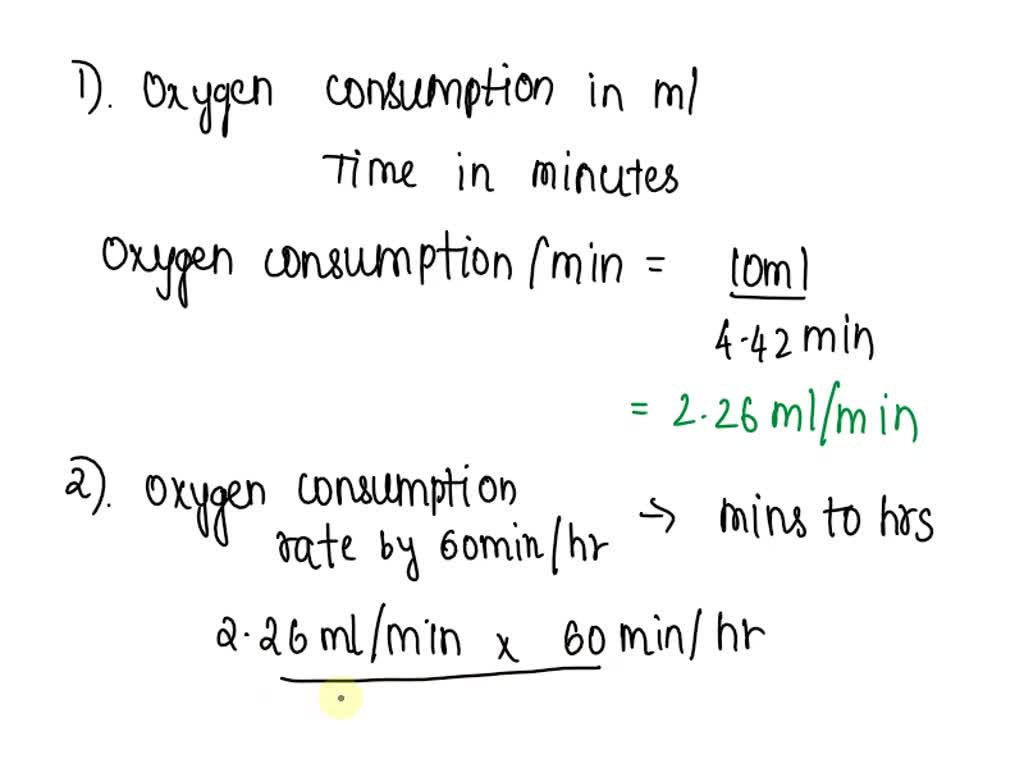 1). Oxygen consumption in ml
Time in minutes
Oxygen consumption/min = 10ml
4.42 min
= 2.26 ml/min
2). Oxygen consumption
rate by 60min/hr → mins to hrs
2.26 ml/min x 60 min/hr